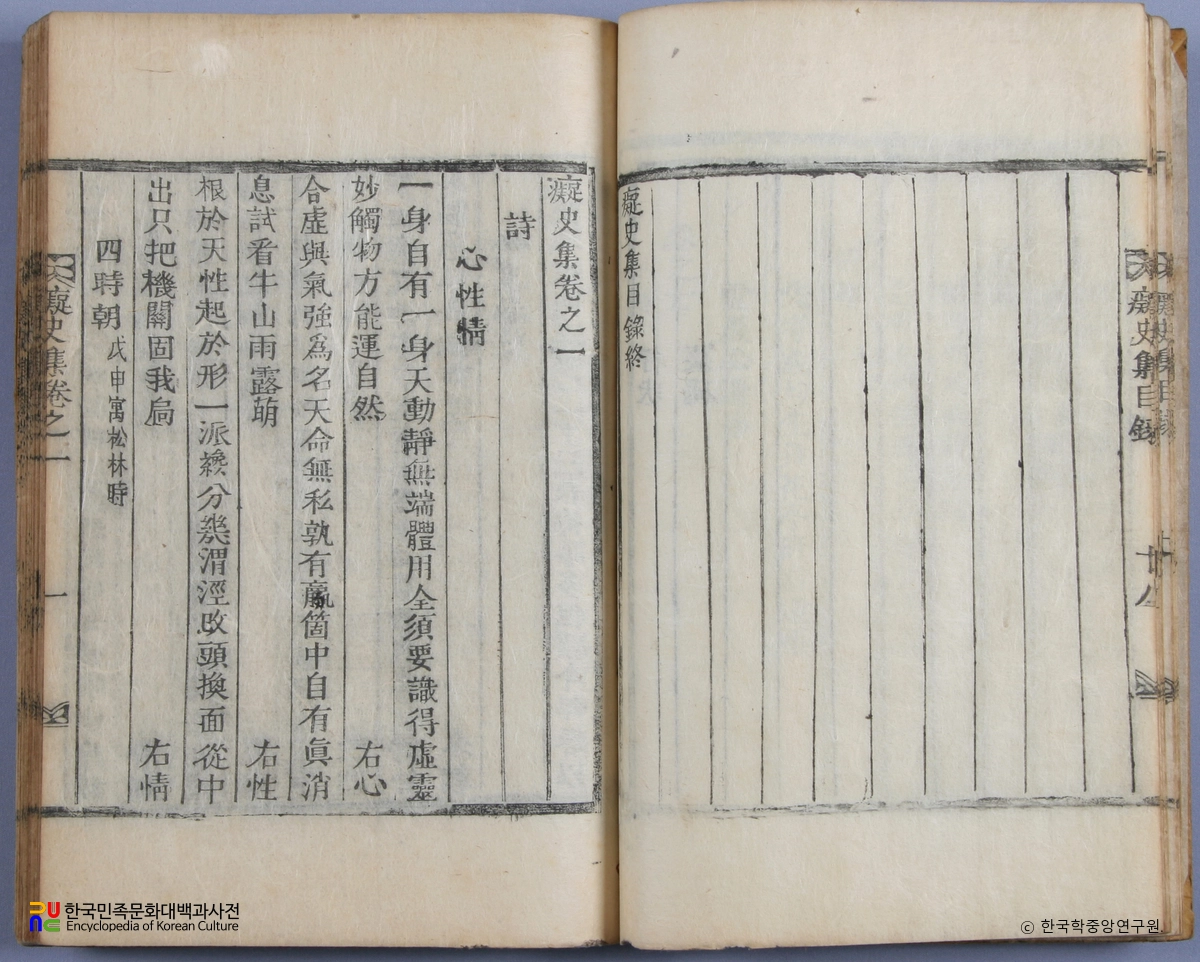 癡史集目錄
廿八
癡史集目錄終
癡史集卷之一
詩
心性情
一身自有一身天動靜無端體用全須要識得虛靈
妙觸物方能運自然 右心
合虛與氣強爲名天命無私孰有贏箇中自有眞消
息試看牛山雨露萌 右性
根於天性起於形一派纔分幾渭涇改頭換面從中
出只把機關固我扃 右情
四時朝 戊申寓松林時
癡史集卷之一
一
한국민족문화대백과사전
Encyclopedia of Korean Culture
© 한국학중앙연구원